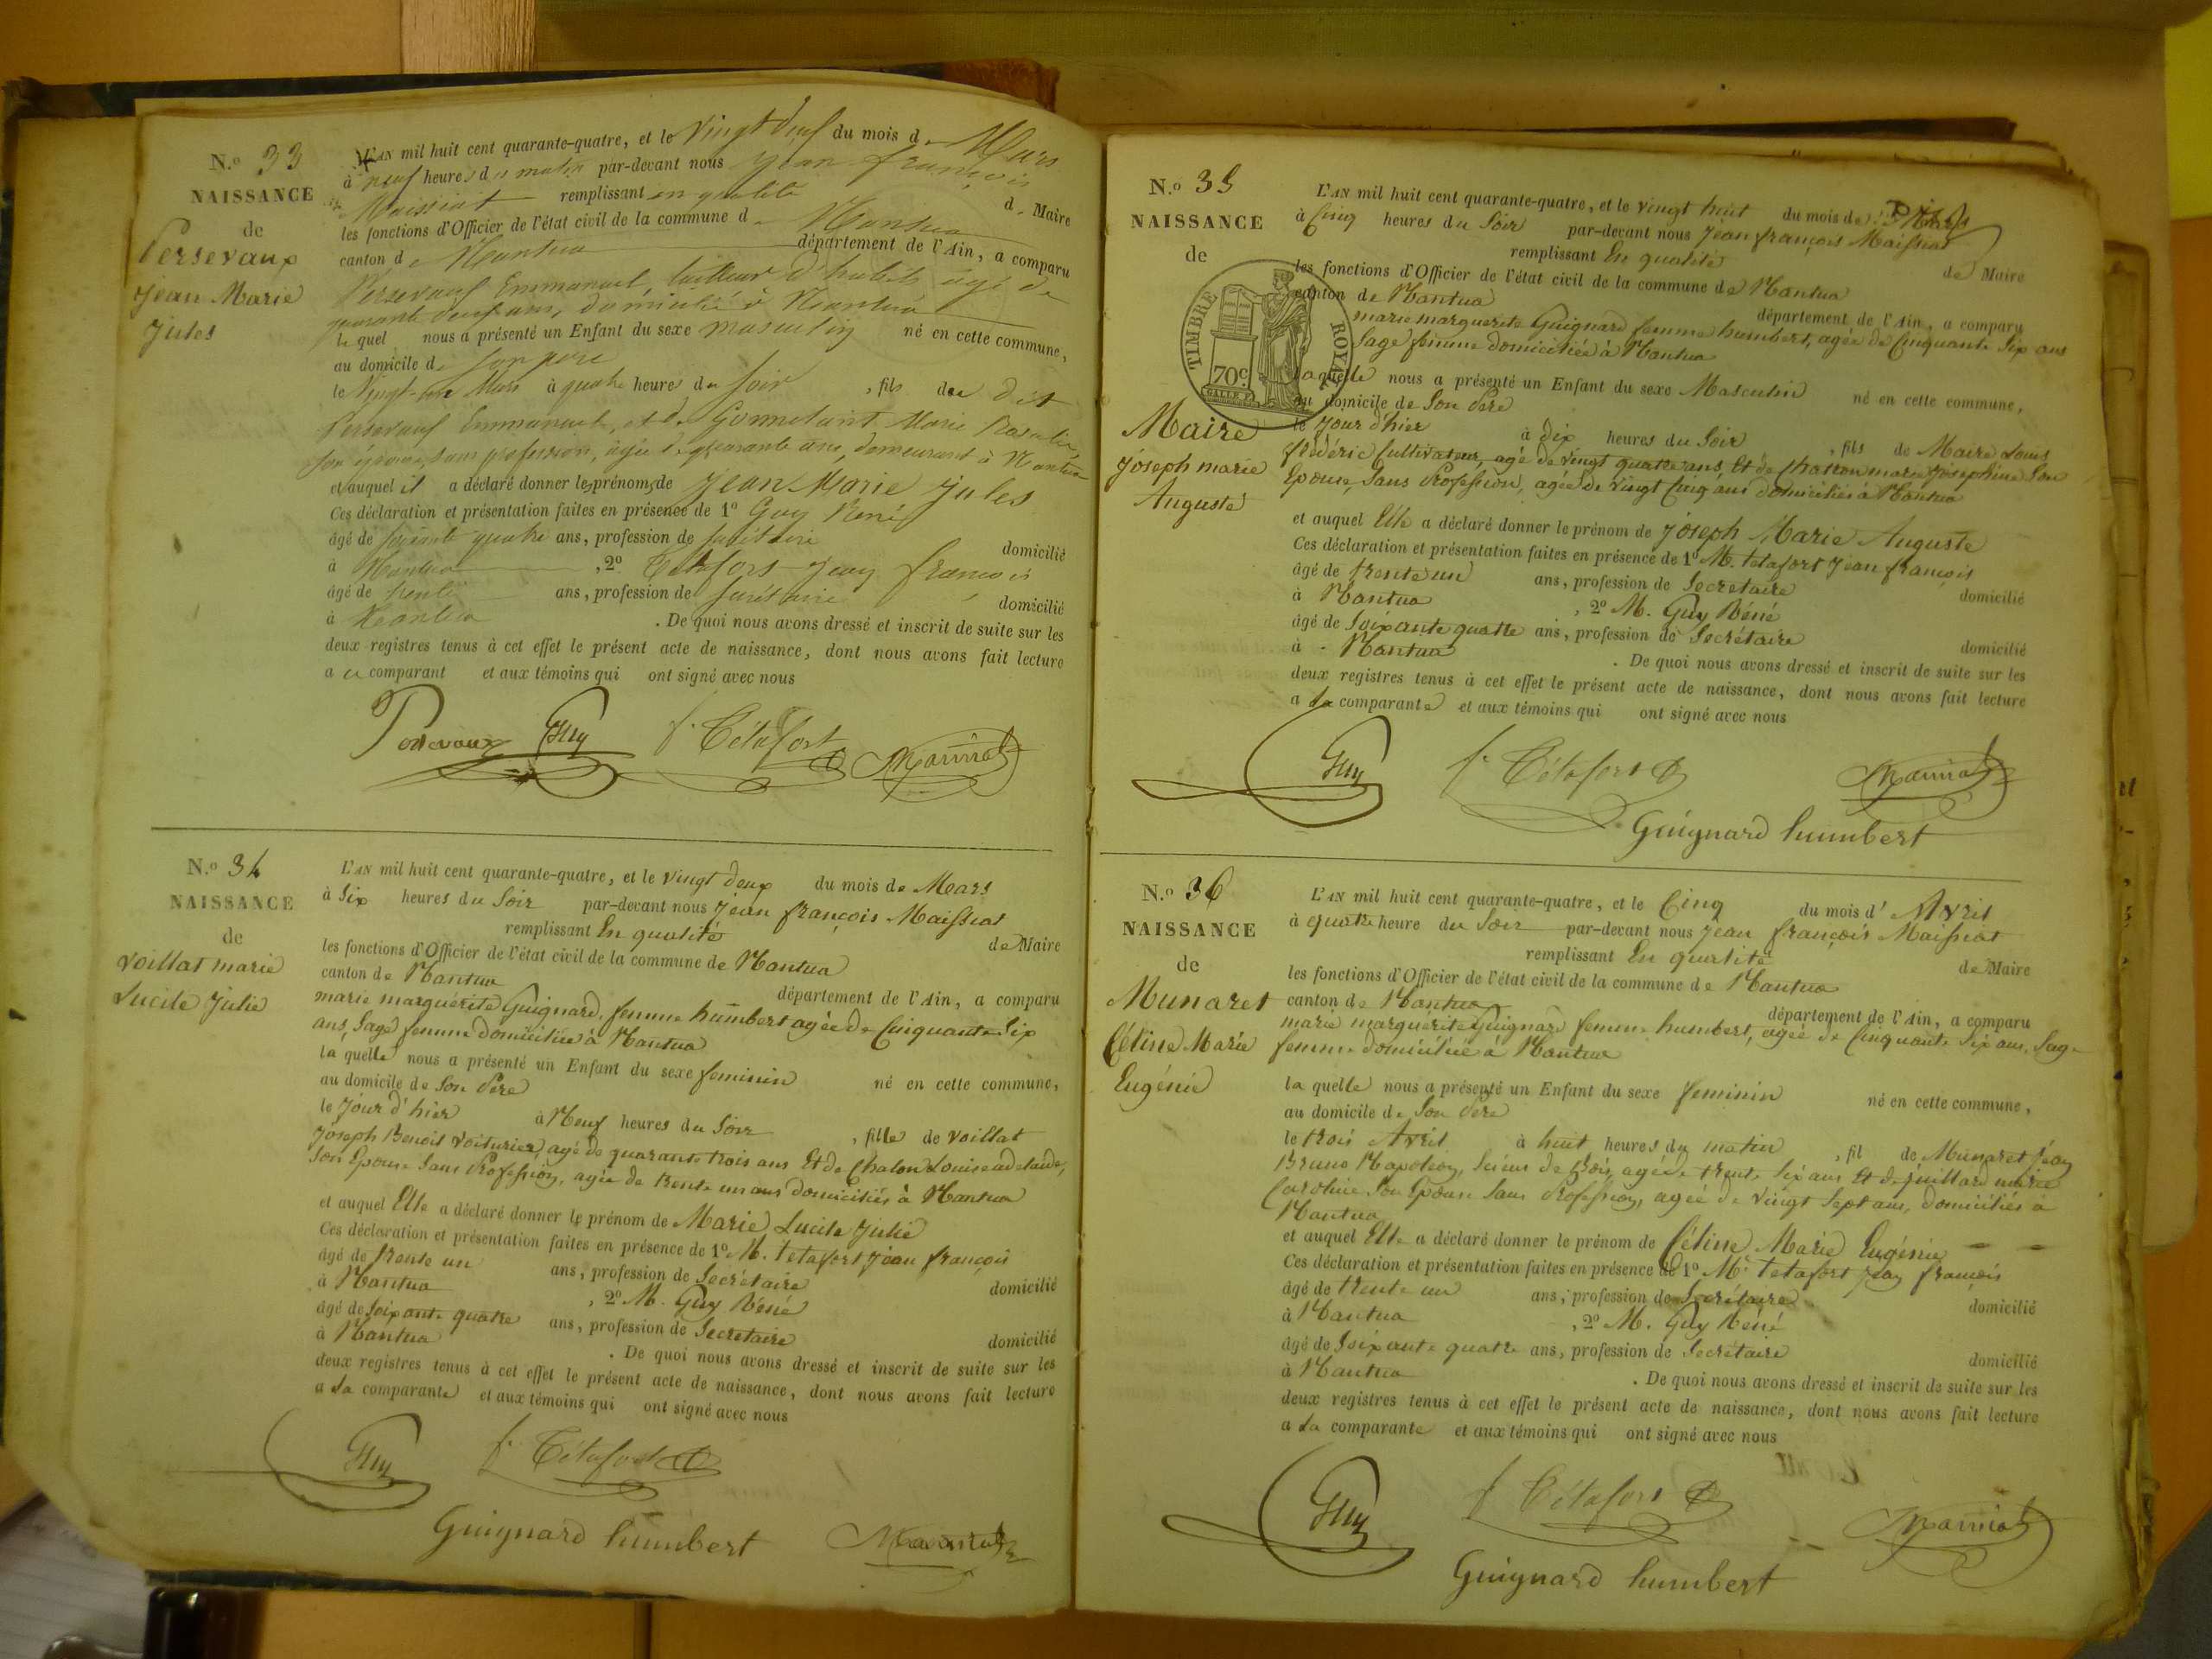 N.o 33
NAISSANCE
de
Persevaux
Jean Marie
Jules
L'AN mil huit cent quarante-quatre, et le vingt deux du mois de Mars
à neuf heures du matin par-devant nous Jean François
Maissiat remplissant en qualité de Maire
les fonctions d'Officier de l'état civil de la commune de Nantua
canton de Nantua département de l'Ain, a comparu
Emmanuel, tailleur d'habits âgé de
quarante deux ans, domicilié à Nantua
lequel nous a présenté un Enfant du sexe masculin né en cette commune,
au domicile de son père
le vingt-un Mars à quatre heure du soir , fils de dit
Emmanuel, et de Marie Rosalie,
son épouse, sans profession, âgée de quarante ans, demeurant à Nantua
et auquel il a déclaré donner les prénoms de Jean Marie Jules
Ces déclaration et présentation faites en présence de 1º Guy René
âgé de soixante quatre ans, profession de secrétaire domicilié
à Nantua , 2º Tétafort Jean François
âgé de trente ans, profession de secrétaire domicilié
à Nantua . De quoi nous avons dressé et inscrit de suite sur les
deux registres tenus à cet effet le présent acte de naissance, dont nous avons fait lecture
a ce comparant et aux témoins qui ont signé avec nous
Persevaux Guy f. Tétafort Maissiat
N.o 34
NAISSANCE
de
Voillat marie
Lucile Julie
L'AN mil huit cent quarante-quatre, et le vingt deux du mois de Mars
à Six heures du Soir par-devant nous Jean françois Maissiat
remplissant En qualité de Maire
les fonctions d'Officier de l'état civil de la commune de Nantua
canton de Nantua département de l'Ain, a comparu
marie marguérite Guignard, femme humbert agée de Cinquante Six
ans, Sage femme domiciliée à Nantua
la quelle nous a présenté un Enfant du sexe feminin né en cette commune,
au domicile de Son Père
le Jour d'hier à Neuf heures du Soir , fille de Voillat
Joseph Benoit Voiturier, agé de quarante trois ans Et de Chalon Louise adelaide,
Son Epouse Sans Profession, agée de trente un ans domiciliés à Nantua
et auquel Elle a déclaré donner le prénom de Marie Lucile Julie
Ces déclaration et présentation faites en présence de 1º M. tetafort Jean françois
âgé de trente un ans, profession de Secrétaire domicilié
à Nantua , 2º M. Guy Réné
âgé de Soixante quatre ans, profession de Secretaire domicilié
à Nantua . De quoi nous avons dressé et inscrit de suite sur les
deux registres tenus à cet effet le présent acte de naissance, dont nous avons fait lecture
a la comparante et aux témoins qui ont signé avec nous
Guy f. Tétafort
Guignard humbert Maissiat
N.o 35
NAISSANCE
de
TIMBRE ROYAL
70c
Maire
Joseph marie
Auguste
L'AN mil huit cent quarante-quatre, et le vingt huit du mois de Mars
à Cinq heures du Soir par-devant nous Jean françois Maissiat
remplissant En qualité de Maire
les fonctions d'Officier de l'état civil de la commune de Nantua
canton de Nantua département de l'Ain, a comparu
marie marguerite Guignard femme humbert, agée de Cinquante Six ans
Sage femme domiciliée à Nantua
laquelle nous a présenté un Enfant du sexe Masculin né en cette commune,
au domicile de Son Père
le Jour d'hier à dix heures du Soir , fils de Maire Louis
frédéric Cultivateur, agé de vingt quatre ans, Et de marie Joséphine Son
Epouse, Sans Profession, agée de vingt Cinq ans domiciliés à Nantua
et auquel Elle a déclaré donner le prénom de Joseph Marie Auguste
Ces déclaration et présentation faites en présence de 1º M. tetafort Jean françois
âgé de trente un ans, profession de Secretaire domicilié
à Nantua , 2º M. Guy Réné
âgé de Soixante quatre ans, profession de Secrétaire domicilié
à Nantua . De quoi nous avons dressé et inscrit de suite sur les
deux registres tenus à cet effet le présent acte de naissance, dont nous avons fait lecture
a la comparante et aux témoins qui ont signé avec nous
Guy f. Tétafort Maissiat
Guignard humbert
N.o 36
NAISSANCE
de
Munaret
Céline Marie
Eugénie
L'AN mil huit cent quarante-quatre, et le Cinq du mois d' Avril
à quatre heure du Soir par-devant nous Jean françois Maissiat
remplissant En qualité de Maire
les fonctions d'Officier de l'état civil de la commune de Nantua
canton de Nantua département de l'Ain, a comparu
marie marguérite Guignard femme humbert, agée de Cinquante Six ans, Sage
femme domiciliée à Nantua
la quelle nous a présenté un Enfant du sexe feminin né en cette commune,
au domicile de Son Père
le trois Avril à huit heures du matin , fil de Munaret Jean
Bruno Napoléon, Scieur de Bois, agé de trente Six ans Et de Juillard marie
Caroline Son Epouse Sans Profession, agée de vingt Sept ans, domiciliés à
Nantua
et auquel Elle a déclaré donner le prénom de Céline Marie Eugénie
Ces déclaration et présentation faites en présence de 1º Mr tetafort Jean françois
âgé de trente un ans, profession de Secrétaire domicilié
à Nantua , 2º M. Guy Réné
âgé de Soixante quatre ans, profession de Secretaire domicilié
à Nantua . De quoi nous avons dressé et inscrit de suite sur les
deux registres tenus à cet effet le présent acte de naissance, dont nous avons fait lecture
a la comparante et aux témoins qui ont signé avec nous
Guy f. Tétafort Maissiat
Guignard humbert